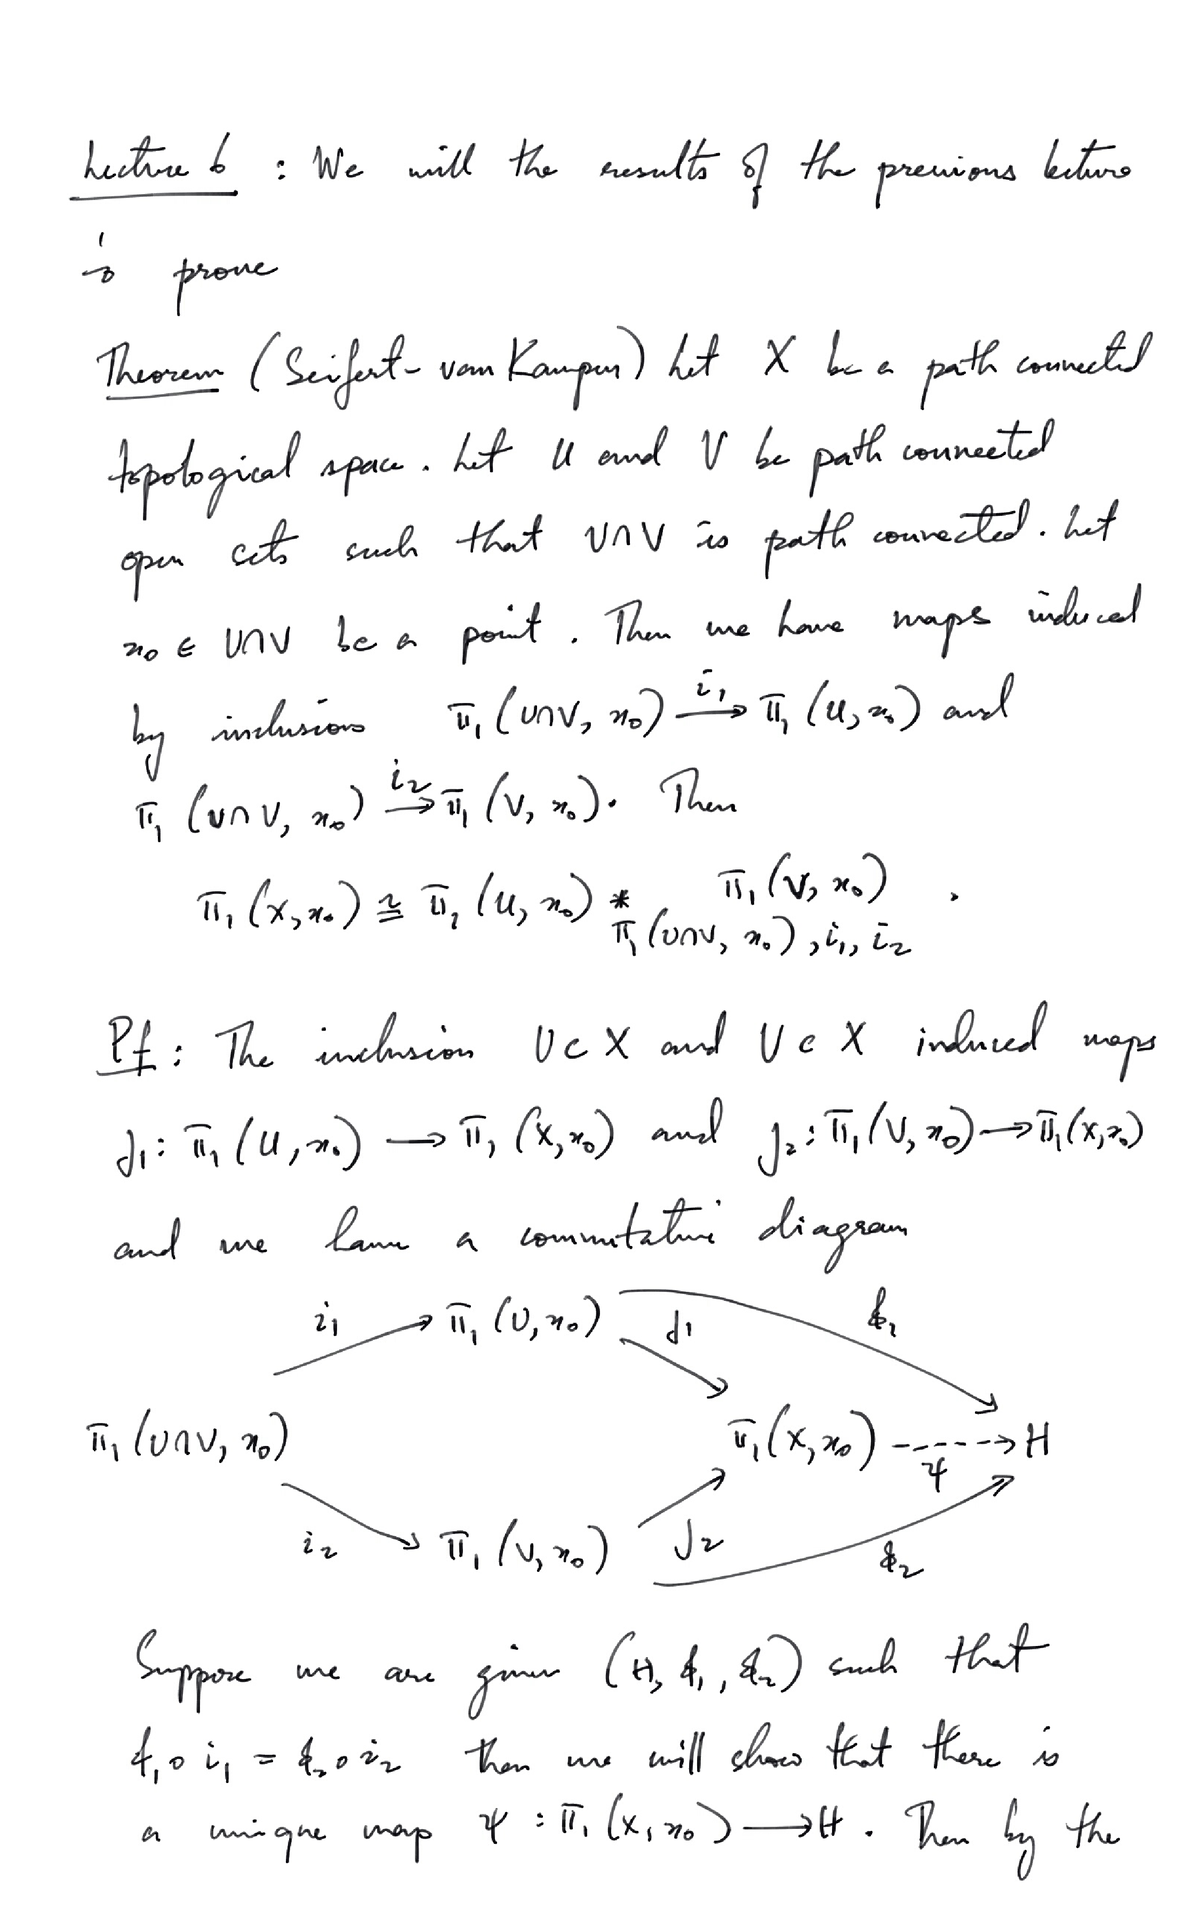 Lecture 6 : We will the results of the previous lecture
to prove
Theorem (Seifert-van Kampen) Let X be a path connected
topological space. Let U and V be path connected
open sets such that U∩V is path connected. Let
x₀ ∈ U∩V be a point. Then we have maps induced
by inclusions π₁(U∩V, x₀) —i₁→ π₁(U, x₀) and
π₁(U∩V, x₀) —i₂→ π₁(V, x₀). Then
π₁(X, x₀) ≅ π₁(U, x₀) *_{π₁(U∩V, x₀), i₁, i₂} π₁(V, x₀).
Pf: The inclusion U⊂X and V⊂X induced maps
j₁: π₁(U, x₀) → π₁(X, x₀) and j₂: π₁(V, x₀) → π₁(X, x₀)
and we have a commutative diagram
i₁ π₁(U, x₀) j₁ ϕ₁
π₁(U∩V, x₀) π₁(X, x₀) ---ψ---> H
i₂ π₁(V, x₀) j₂ ϕ₂
Suppose we are given (H, ϕ₁, ϕ₂) such that
ϕ₁∘i₁ = ϕ₂∘i₂ then we will show that there is
a unique map ψ : π₁(X, x₀) → H. Then by the